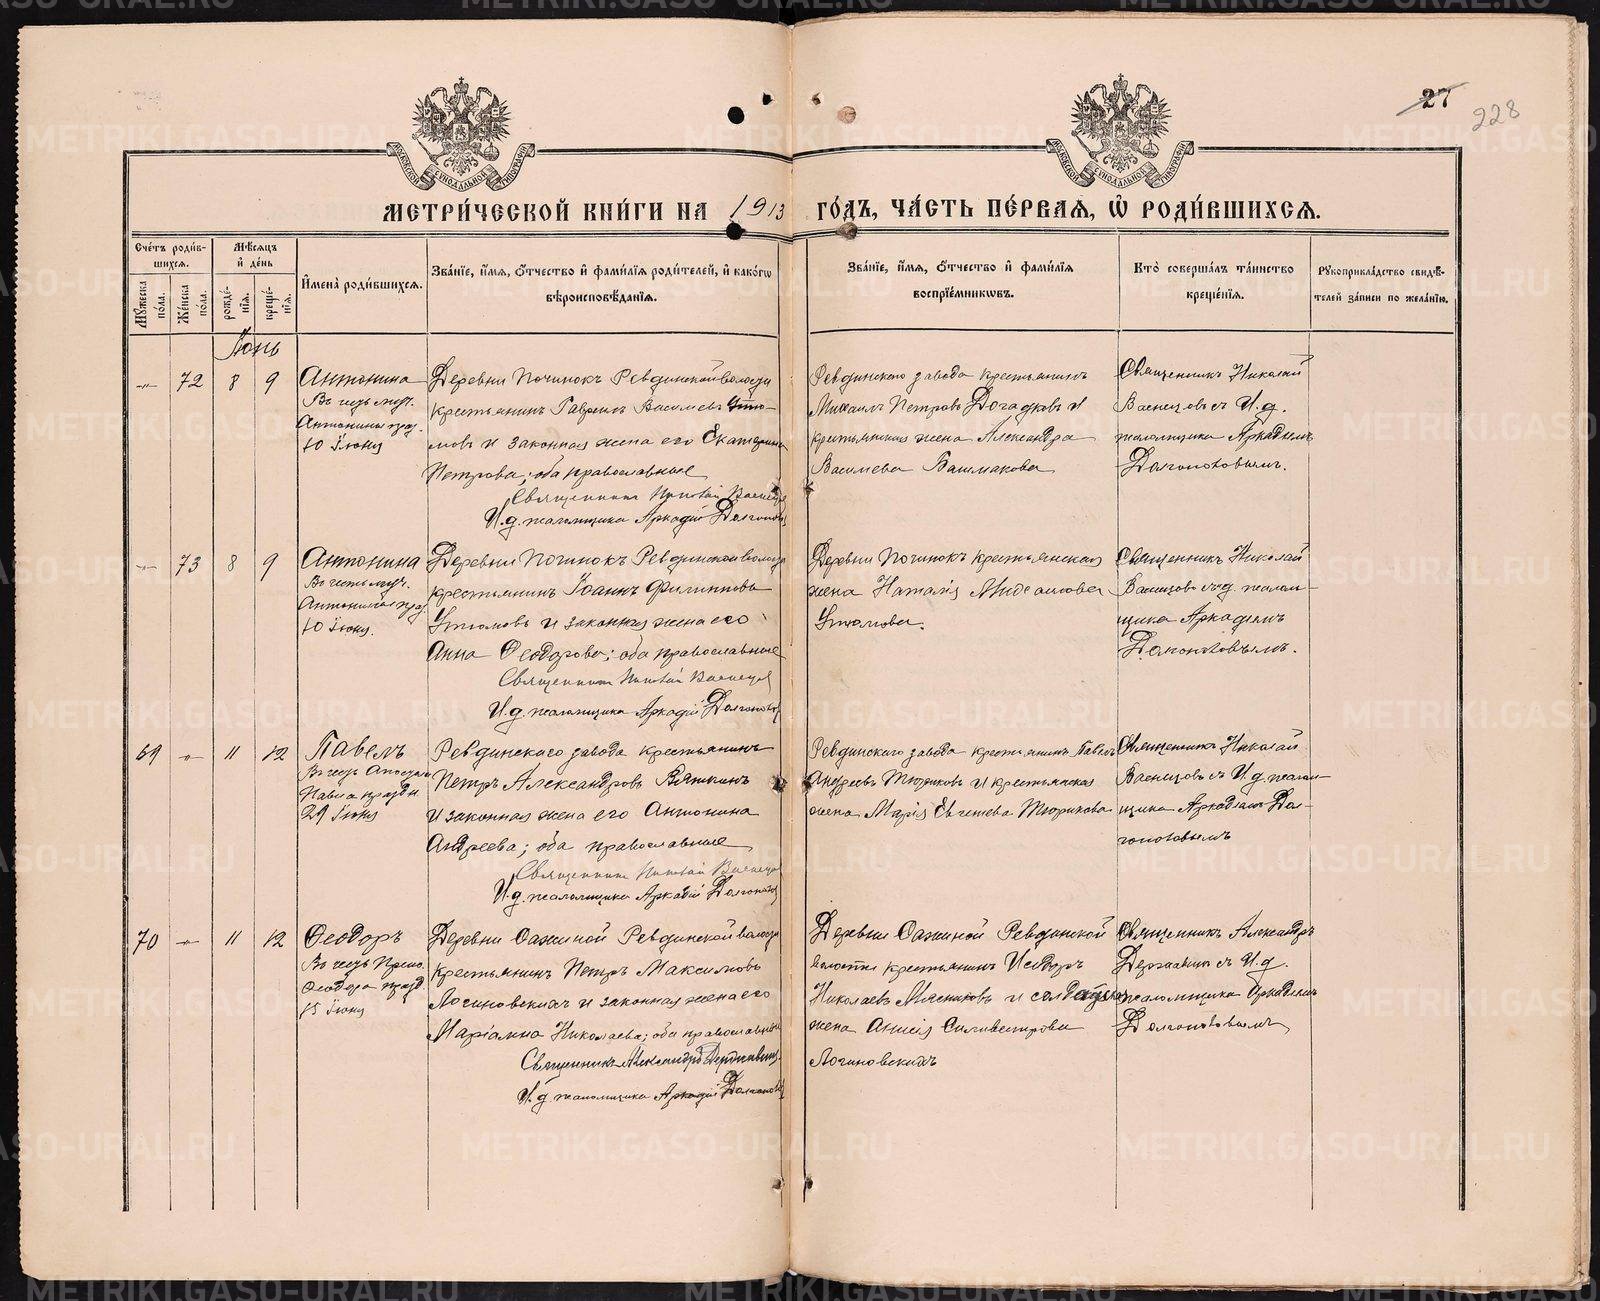 27
228
МОСКОВСКОЙ СѴНОДАЛЬНОЙ ТИПОГРАФІИ
МОСКОВСКОЙ СѴНОДАЛЬНОЙ ТИПОГРАФІИ
МЕТРИ́ЧЕСКОЙ КНИ́ГИ НА 1913 ГО́ДЪ, ЧА́СТЬ ПЕ́РВАѦ, Ѡ҆ РОДИ́ВШИХСѦ.
Сче́тъ роди́в-
шихсѧ.
Мꙋ́жеска по́ла.
Же́нска по́ла.
Мѣ́сѧцъ
и҆ де́нь
рожде́-
нїѧ.
креще́-
нїѧ.
И҆мена̀ роди́вшихсѧ.
Зва́нїе, и҆́мѧ, ѻ҆́тчество и҆ фами́лїѧ роди́телей, и҆ како́гѡ
вѣроисповѣ́данїѧ.
Зва́нїе, и҆́мѧ, ѻ҆́тчество и҆ фами́лїѧ
воспрїе́мникѡвъ.
Кто̀ соверша́лъ та́инство
креще́нїѧ.
Рꙋкоприкла́дство свидѣ́-
телей за́писи по жела́нїю.
Іюнь
-"- 72 8 9
Антонина
Въ честь муч.
Антонины празд.
10 Іюня
Деревни Починокъ Ревдинской волости
крестьянинъ Гавріилъ Васильевъ Утю-
мовъ и законная жена его Екатерина
Петрова; оба православные
Священникъ Николай Васнецовъ
И.д. псаломщика Аркадій Долгополовъ
Ревдинскаго завода крестьянинъ
Михаилъ Петровъ Догадковъ и
крестьянская жена Александра
Васильева Башмакова
Священникъ Николай
Васнецовъ съ И.д.
псаломщика Аркадіемъ
Долгополовымъ.
-"- 73 8 9
Антонина
Въ честь муч.
Антонины празд.
10 Іюня.
Деревни Починокъ Ревдинской волости
крестьянинъ Іоаннъ Филиппова
Утюмовъ и законная жена его
Анна Ѳеодорова; оба православные
Священникъ Николай Васнецовъ
И.д. псаломщика Аркадій Долгополовъ
Деревни Починокъ крестьянская
жена Наталія
Утюмова.
Священникъ Николай
Васнецовъ съ и.д. псалом-
щика Аркадіемъ
Долгополовымъ.
69 -"- 11 12
Павелъ
Въ честь Апостола
Павла праздн.
29 Іюня
Ревдинскаго завода крестьянинъ
Петръ Александровъ Вяткинъ
и законная жена его Антонина
Андреева; оба православные
Священникъ Николай Васнецовъ
И.д. псаломщика Аркадій Долгополовъ
Ревдинскаго завода крестьянинъ Павелъ
Андреевъ Тюриковъ и крестьянская
жена Марія Евгеньева Тюрикова
Священникъ Николай
Васнецовъ съ И.д. псалом-
щика Аркадіемъ Дол-
гополовымъ
70 -"- 11 12
Ѳеодоръ
Въ честь Препо.
Ѳеодора празд.
15 Іюня
Деревни Сажиной Ревдинской волости
крестьянинъ Петръ Максимовъ
Логиновскихъ и законная жена его
Маріамна Николаева; оба православные
Священникъ Александръ Державинъ
И.д. псаломщика Аркадій Долгополовъ
Деревни Сажиной Ревдинской
волости крестьянинъ Исидоръ
Николаевъ Мясниковъ и солдатская
жена Анисія Сильвестрова
Логиновскихъ
Священникъ Александръ
Державинъ съ И.д.
псаломщика Аркадіемъ
Долгополовымъ
METRIKI.GASO-URAL.RU